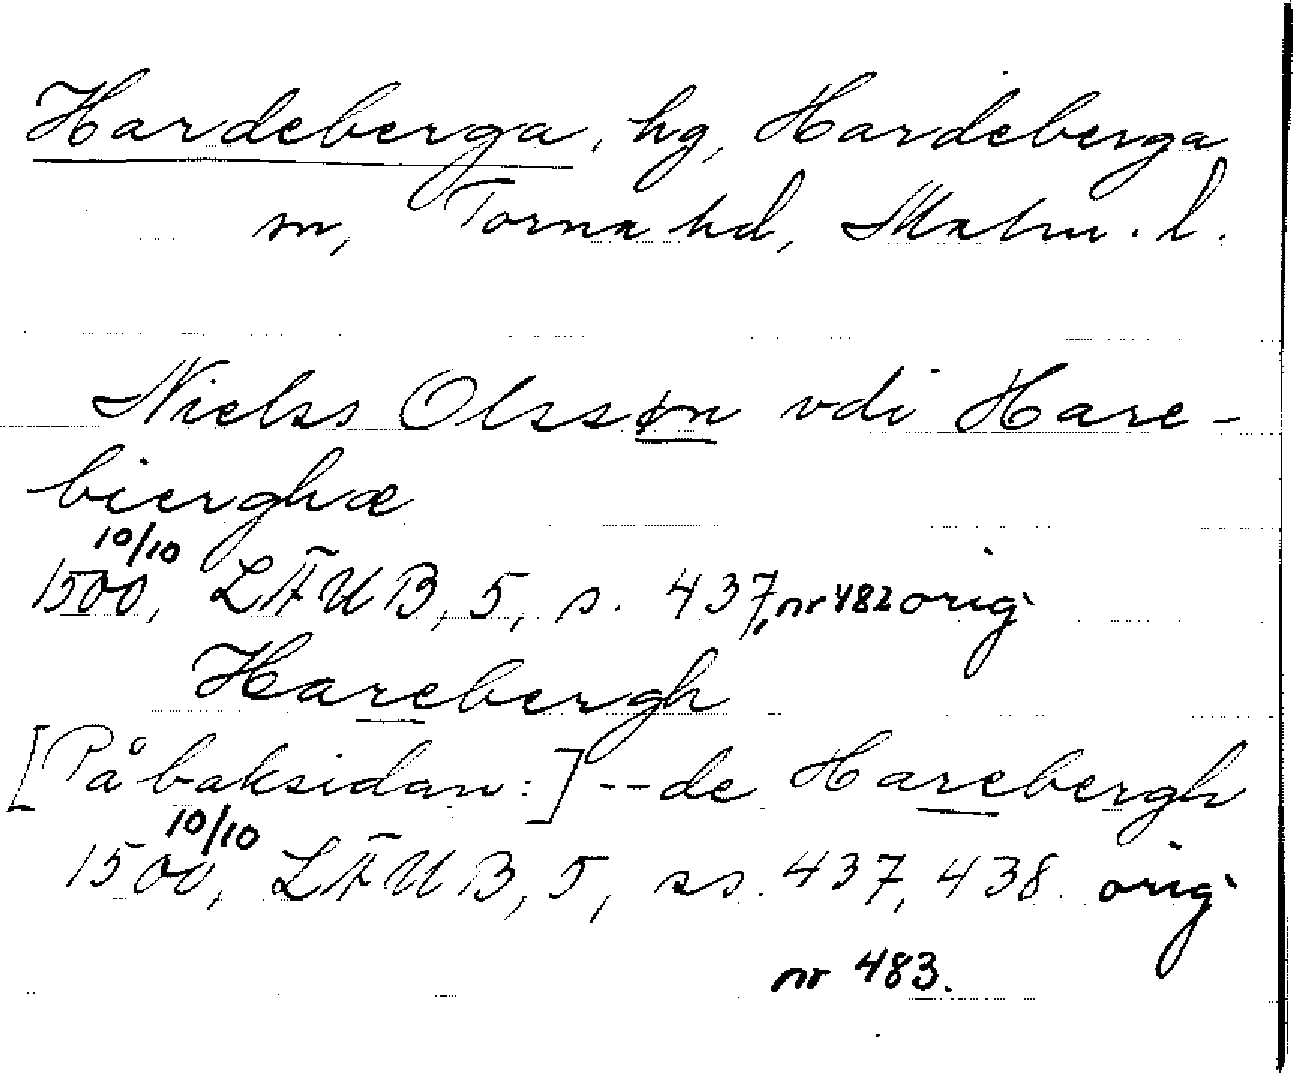 Hardeberga, hg, Hardeberga
sn, Torna hd, Malm. l.
Nielss Olssøn vdi Hare-
bierghæ
10/10
1500, LÄUB, 5, s. 437, nr 482 orig
Harebergh
[På baksidan:] -- de Harebergh
10/10
1500, LÄUB, 5, ss. 437, 438. orig
nr 483.